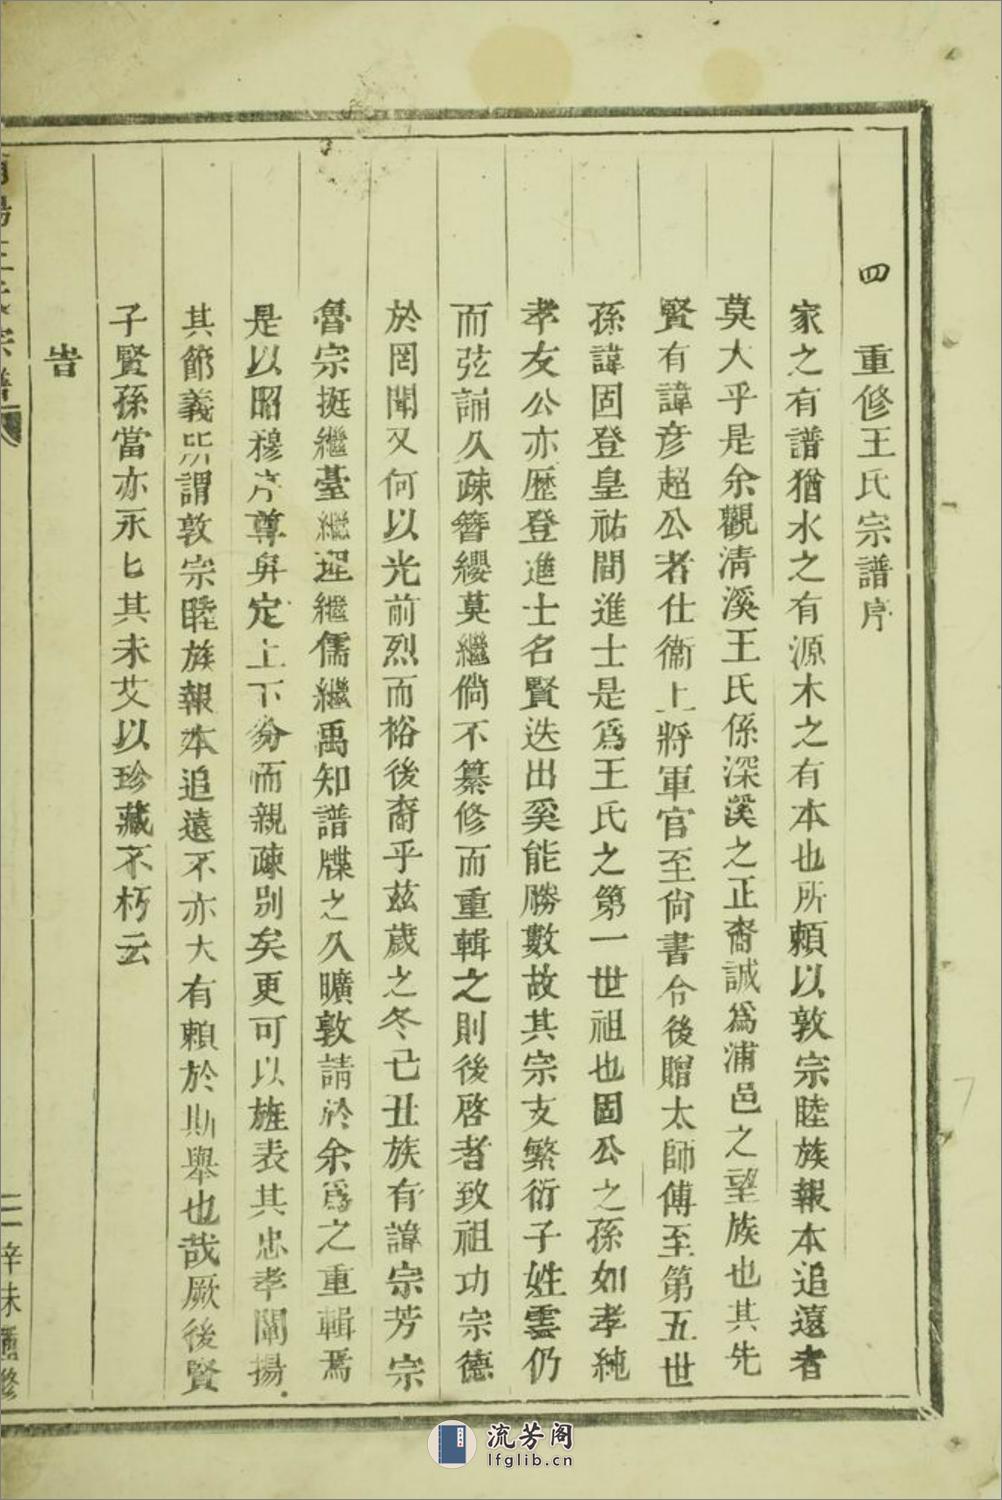 四　重修王氏宗譜序
家之有譜猶水之有源木之有本也所頼以敦宗睦族報本追遠者
莫大乎是余觀清溪王氏係深溪之正裔誠爲浦邑之望族也其先
賢有諱彦超公者仕衞上將軍官至尙書令後贈太師傅至第五世
孫諱固登皇祐間進士是爲王氏之第一世祖也固公之孫如孝純
孝友公亦歷登進士名賢迭出奚能勝數故其宗支繁衍子姓雲仍
而弦誦久疎簪纓莫繼倘不纂修而重輯之則後啓者致祖功宗德
於罔聞又何以光前烈而裕後裔乎兹歲之冬己丑族有諱宗芳宗
魯宗挺繼臺繼理繼儒繼禹知譜牒之久曠敦請於余爲之重輯焉
是以昭穆序尊卑定上下分而親疎别矣更可以旌表其忠孝闡揚
其節義所謂敦宗睦族報本追遠不亦大有賴於斯舉也哉厥後賢
子賢孫當亦永匕其未艾以珍藏不朽云
旹
王氏宗譜
三 辛未重修
流芳阁
lfglib.cn